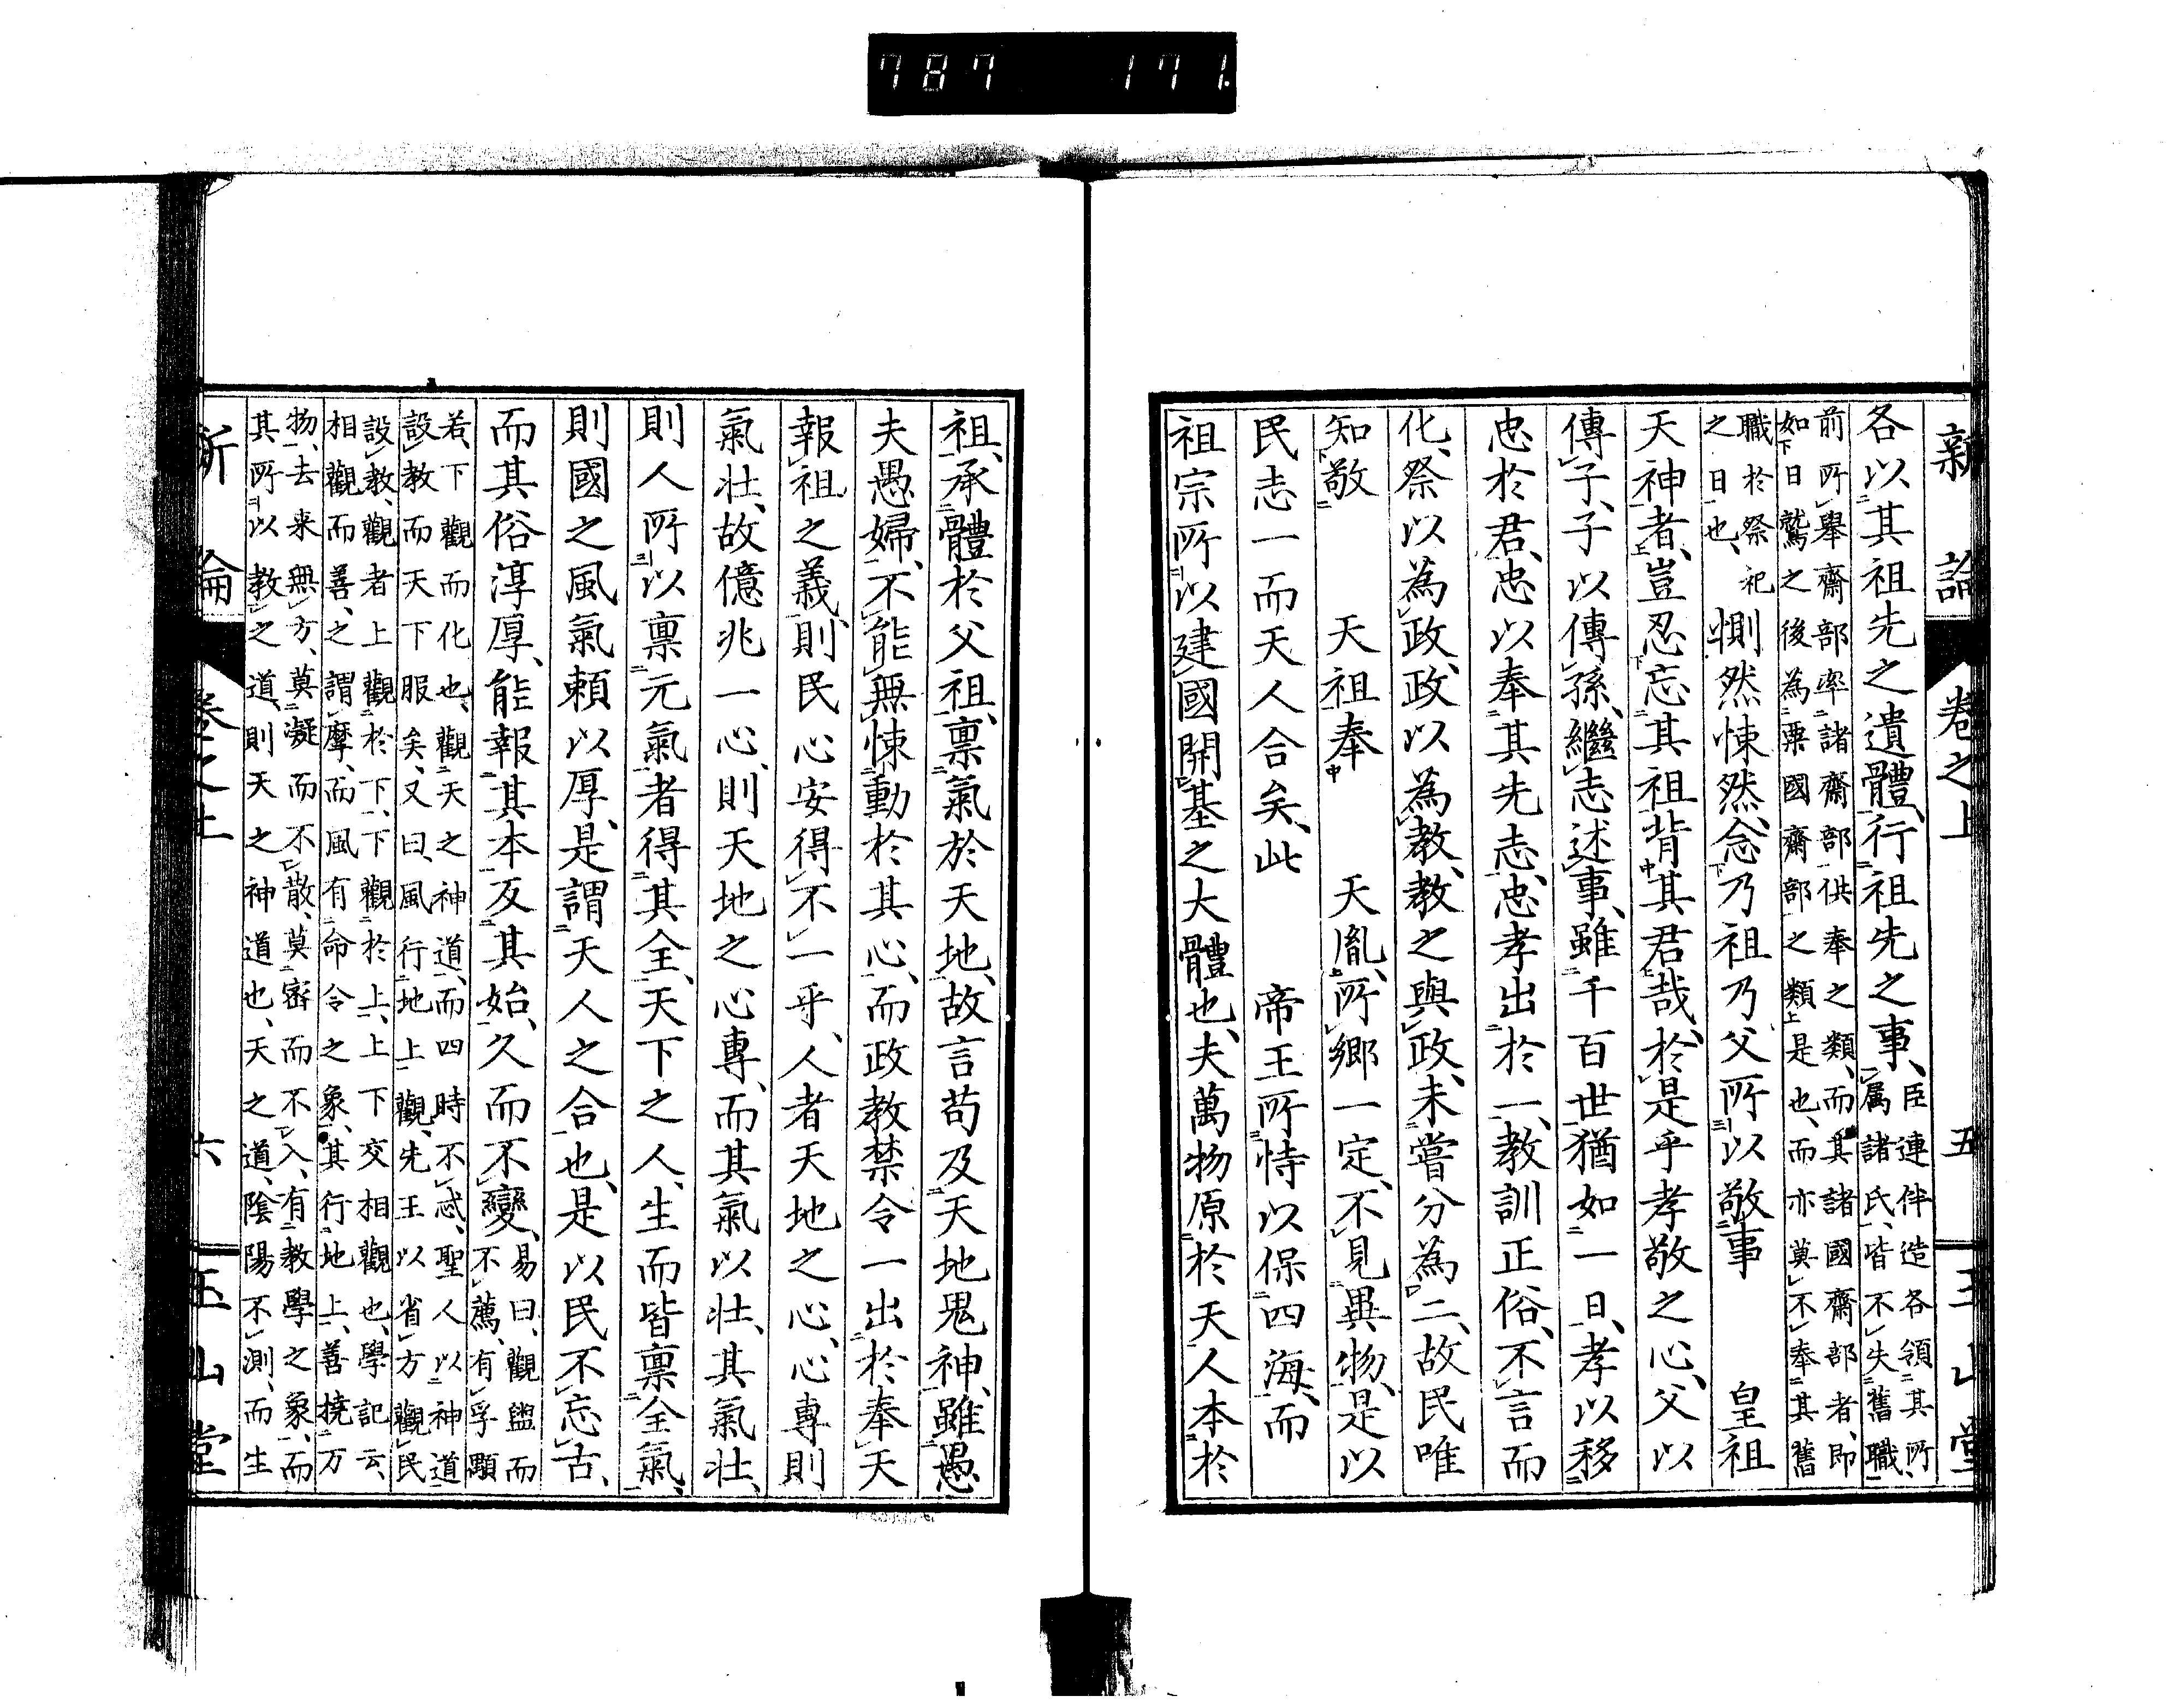 787 171
新論 卷之上 五 玉山堂
各以其祖先之遺體、行祖先之事、臣連伴造各領其所、
屬諸氏、皆不失舊職、
前所舉齋部率諸齋部供奉之類、而其諸國齋部者、即
如日鷲之後為粟國齋部之類是也、而亦莫不奉其舊
職於祭祀
之日也、惻然悚然、念乃祖乃父所以敬事 皇祖
天神者、豈忍忘其祖背其君哉、於是乎孝敬之心、父以
傳子、子以傳孫、繼志述事、雖千百世猶如一日、孝以移
忠於君、忠以奉其先志、忠孝出於一、教訓正俗、不言而
化、祭以為政、政以為教、教之與政、未嘗分為二、故民唯
知敬 天祖奉 天胤、所鄉一定、不見異物、是以
民志一而天人合矣、此 帝王所恃以保四海、而
祖宗所以建國開基之大體也、夫萬物原於天、人本於
祖、承體於父祖、稟氣於天地、故言苟及天地鬼神、雖愚
夫愚婦、不能無悚動於其心、而政教禁令一出於奉天
報祖之義、則民心安得不一乎、人者天地之心、心專則
氣壯、故億兆一心、則天地之心專、而其氣以壯、其氣壯、
則人所以稟元氣者得其全、天下之人、生而皆稟全氣、
則國之風氣賴以厚、是謂天人之合也、是以民不忘古、
而其俗淳厚、能報其本反其始、久而不變、易曰、觀盥而
不薦、有孚顒
若、下觀而化也、觀天之神道、而四時不忒、聖人以神道
設教而天下服矣、又曰、風行地上觀、先王以省方觀民
設教、觀者上觀於下、下觀於上、上下交相觀也、學記云、
相觀而善、之謂摩、而風有命令之象、其行地上、善撓万
物、去来無方、莫凝而不散、莫密而不入、有教學之象、而
其所以教之道、則天之神道也、天之道、陰陽不測、而生
新論 卷之上 六 玉山堂